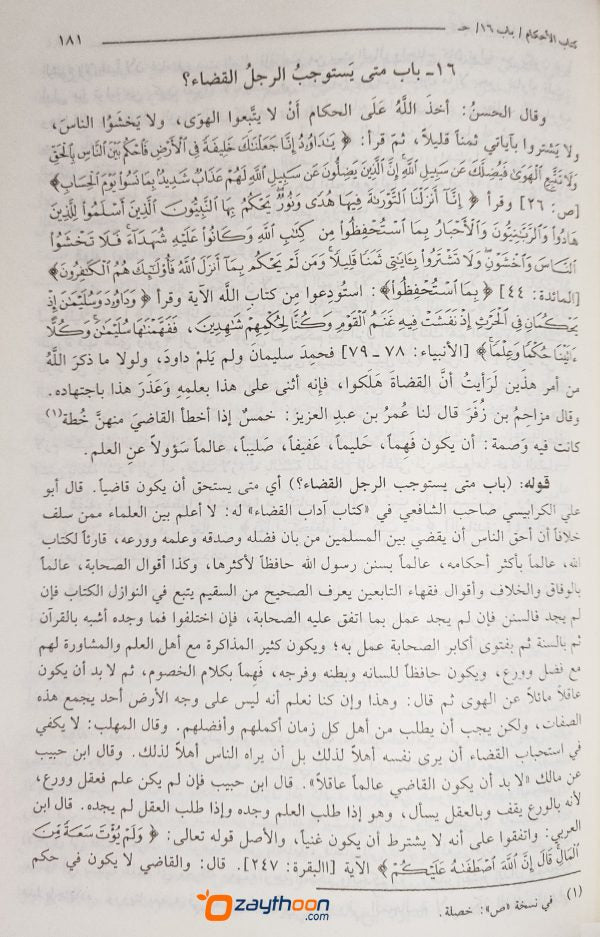 كتاب الأحكام / باب ١٦/ حـ
١٨١
١٦ - باب متى يَستوجبُ الرجلُ القضاء؟
وقال الحسنُ: أخذَ اللَّهُ عَلَى الحكام أنْ لا يتَّبعوا الهوَى، ولا يَخشَوُا الناسَ،
ولا يَشتروا بآياتي ثمناً قليلاً، ثمّ قرأ: ﴿ يَٰدَاوُۥدُ إِنَّا جَعَلْنَٰكَ خَلِيفَةً فِى ٱلْأَرْضِ فَٱحْكُم بَيْنَ ٱلنَّاسِ بِٱلْحَقِّ
وَلَا تَتَّبِعِ ٱلْهَوَىٰ فَيُضِلَّكَ عَن سَبِيلِ ٱللَّهِ إِنَّ ٱلَّذِينَ يَضِلُّونَ عَن سَبِيلِ ٱللَّهِ لَهُمْ عَذَابٌ شَدِيدٌۢ بِمَا نَسُوا۟ يَوْمَ ٱلْحِسَابِ﴾
[ص: ٢٦] وقرأ ﴿ إِنَّآ أَنزَلْنَا ٱلتَّوْرَىٰةَ فِيهَا هُدًى وَنُورٌ يَحْكُمُ بِهَا ٱلنَّبِيُّونَ ٱلَّذِينَ أَسْلَمُوا۟ لِلَّذِينَ
هَادُوا۟ وَٱلرَّبَّٰنِيُّونَ وَٱلْأَحْبَارُ بِمَا ٱسْتُحْفِظُوا۟ مِن كِتَٰبِ ٱللَّهِ وَكَانُوا۟ عَلَيْهِ شُهَدَآءَ فَلَا تَخْشَوُا۟
ٱلنَّاسَ وَٱخْشَوْنِ وَلَا تَشْتَرُوا۟ بِـَٔايَٰتِى ثَمَنًا قَلِيلًا وَمَن لَّمْ يَحْكُم بِمَآ أَنزَلَ ٱللَّهُ فَأُو۟لَٰٓئِكَ هُمُ ٱلْكَٰفِرُونَ﴾
[المائدة: ٤٤] ﴿بِمَا ٱسْتُحْفِظُوا۟﴾: استُودِعوا مِن كتابِ اللَّه الآية وقرأ ﴿ وَدَاوُۥدَ وَسُلَيْمَٰنَ إِذْ
يَحْكُمَانِ فِى ٱلْحَرْثِ إِذْ نَفَشَتْ فِيهِ غَنَمُ ٱلْقَوْمِ وَكُنَّا لِحُكْمِهِمْ شَٰهِدِينَ، فَفَهَّمْنَٰهَا سُلَيْمَٰنَ وَكُلًّا
ءَاتَيْنَا حُكْمًا وَعِلْمًا﴾ [الأنبياء: ٧٨ - ٧٩] فحمِدَ سليمانَ ولم يَلمْ داودَ، ولولا ما ذكرَ اللَّهُ
من أمر هذَين لَرأيتُ أنَّ القضاةَ هَلَكوا، فإنه أثنى على هذا بعلمِهِ وعَذَرَ هذا باجتهاده.
وقال مزاحِمُ بن زُفَرَ قال لنا عمرُ بن عبدِ العزيز: خمسٌ إذا أخطأ القاضيَ منهنَّ خُطةٌ(١)
كانت فيه وَصمة: أن يكون فَهِماً، حَليماً، عَفيفاً، صَليباً، عالماً سَؤولاً عنِ العلم.
قوله: (باب متى يستوجب الرجل القضاء؟) أي متى يستحق أن يكون قاضياً. قال أبو
علي الكرابيسي صاحب الشافعي في «كتاب آداب القضاء» له: لا أعلم بين العلماء ممن سلف
خلافاً أن أحق الناس أن يقضي بين المسلمين من بان فضله وصدقه وعلمه وورعه، قارئاً لكتاب
الله، عالماً بأكثر أحكامه، عالماً بسنن رسول الله حافظاً لأكثرها، وكذا أقوال الصحابة، عالماً
بالوفاق والخلاف وأقوال فقهاء التابعين يعرف الصحيح من السقيم يتبع في النوازل الكتاب فإن
لم يجد فالسنن فإن لم يجد عمل بما اتفق عليه الصحابة، فإن اختلفوا فما وجده أشبه بالقرآن
ثم بالسنة ثم بفتوى أكابر الصحابة عمل به؛ ويكون كثير المذاكرة مع أهل العلم والمشاورة لهم
مع فضل وورع، ويكون حافظاً للسانه وبطنه وفرجه، فَهِماً بكلام الخصوم، ثم لا بد أن يكون
عاقلاً مائلاً عن الهوى ثم قال: وهذا وإن كنا نعلم أنه ليس على وجه الأرض أحد يجمع هذه
الصفات، ولكن يجب أن يطلب من أهل كل زمان أكملهم وأفضلهم. وقال المهلب: لا يكفي
في استحباب القضاء أن يرى نفسه أهلاً لذلك بل أن يراه الناس أهلاً لذلك. وقال ابن حبيب
عن مالك «لا بد أن يكون القاضي عالماً عاقلاً». قال ابن حبيب فإن لم يكن علم فعقل وورع،
لأنه بالورع يقف وبالعقل يسأل، وهو إذا طلب العلم وجده وإذا طلب العقل لم يجده. قال ابن
العربي: واتفقوا على أنه لا يشترط أن يكون غنياً، والأصل قوله تعالى: ﴿ وَلَمْ يُؤْتَ سَعَةً مِّنَ
ٱلْمَالِ قَالَ إِنَّ ٱللَّهَ ٱصْطَفَىٰهُ عَلَيْكُمْ ﴾ الآية [البقرة: ٢٤٧]. قال: والقاضي لا يكون في حكم
(١) في نسخة «ص»: خصلة.
zaythoon
.com